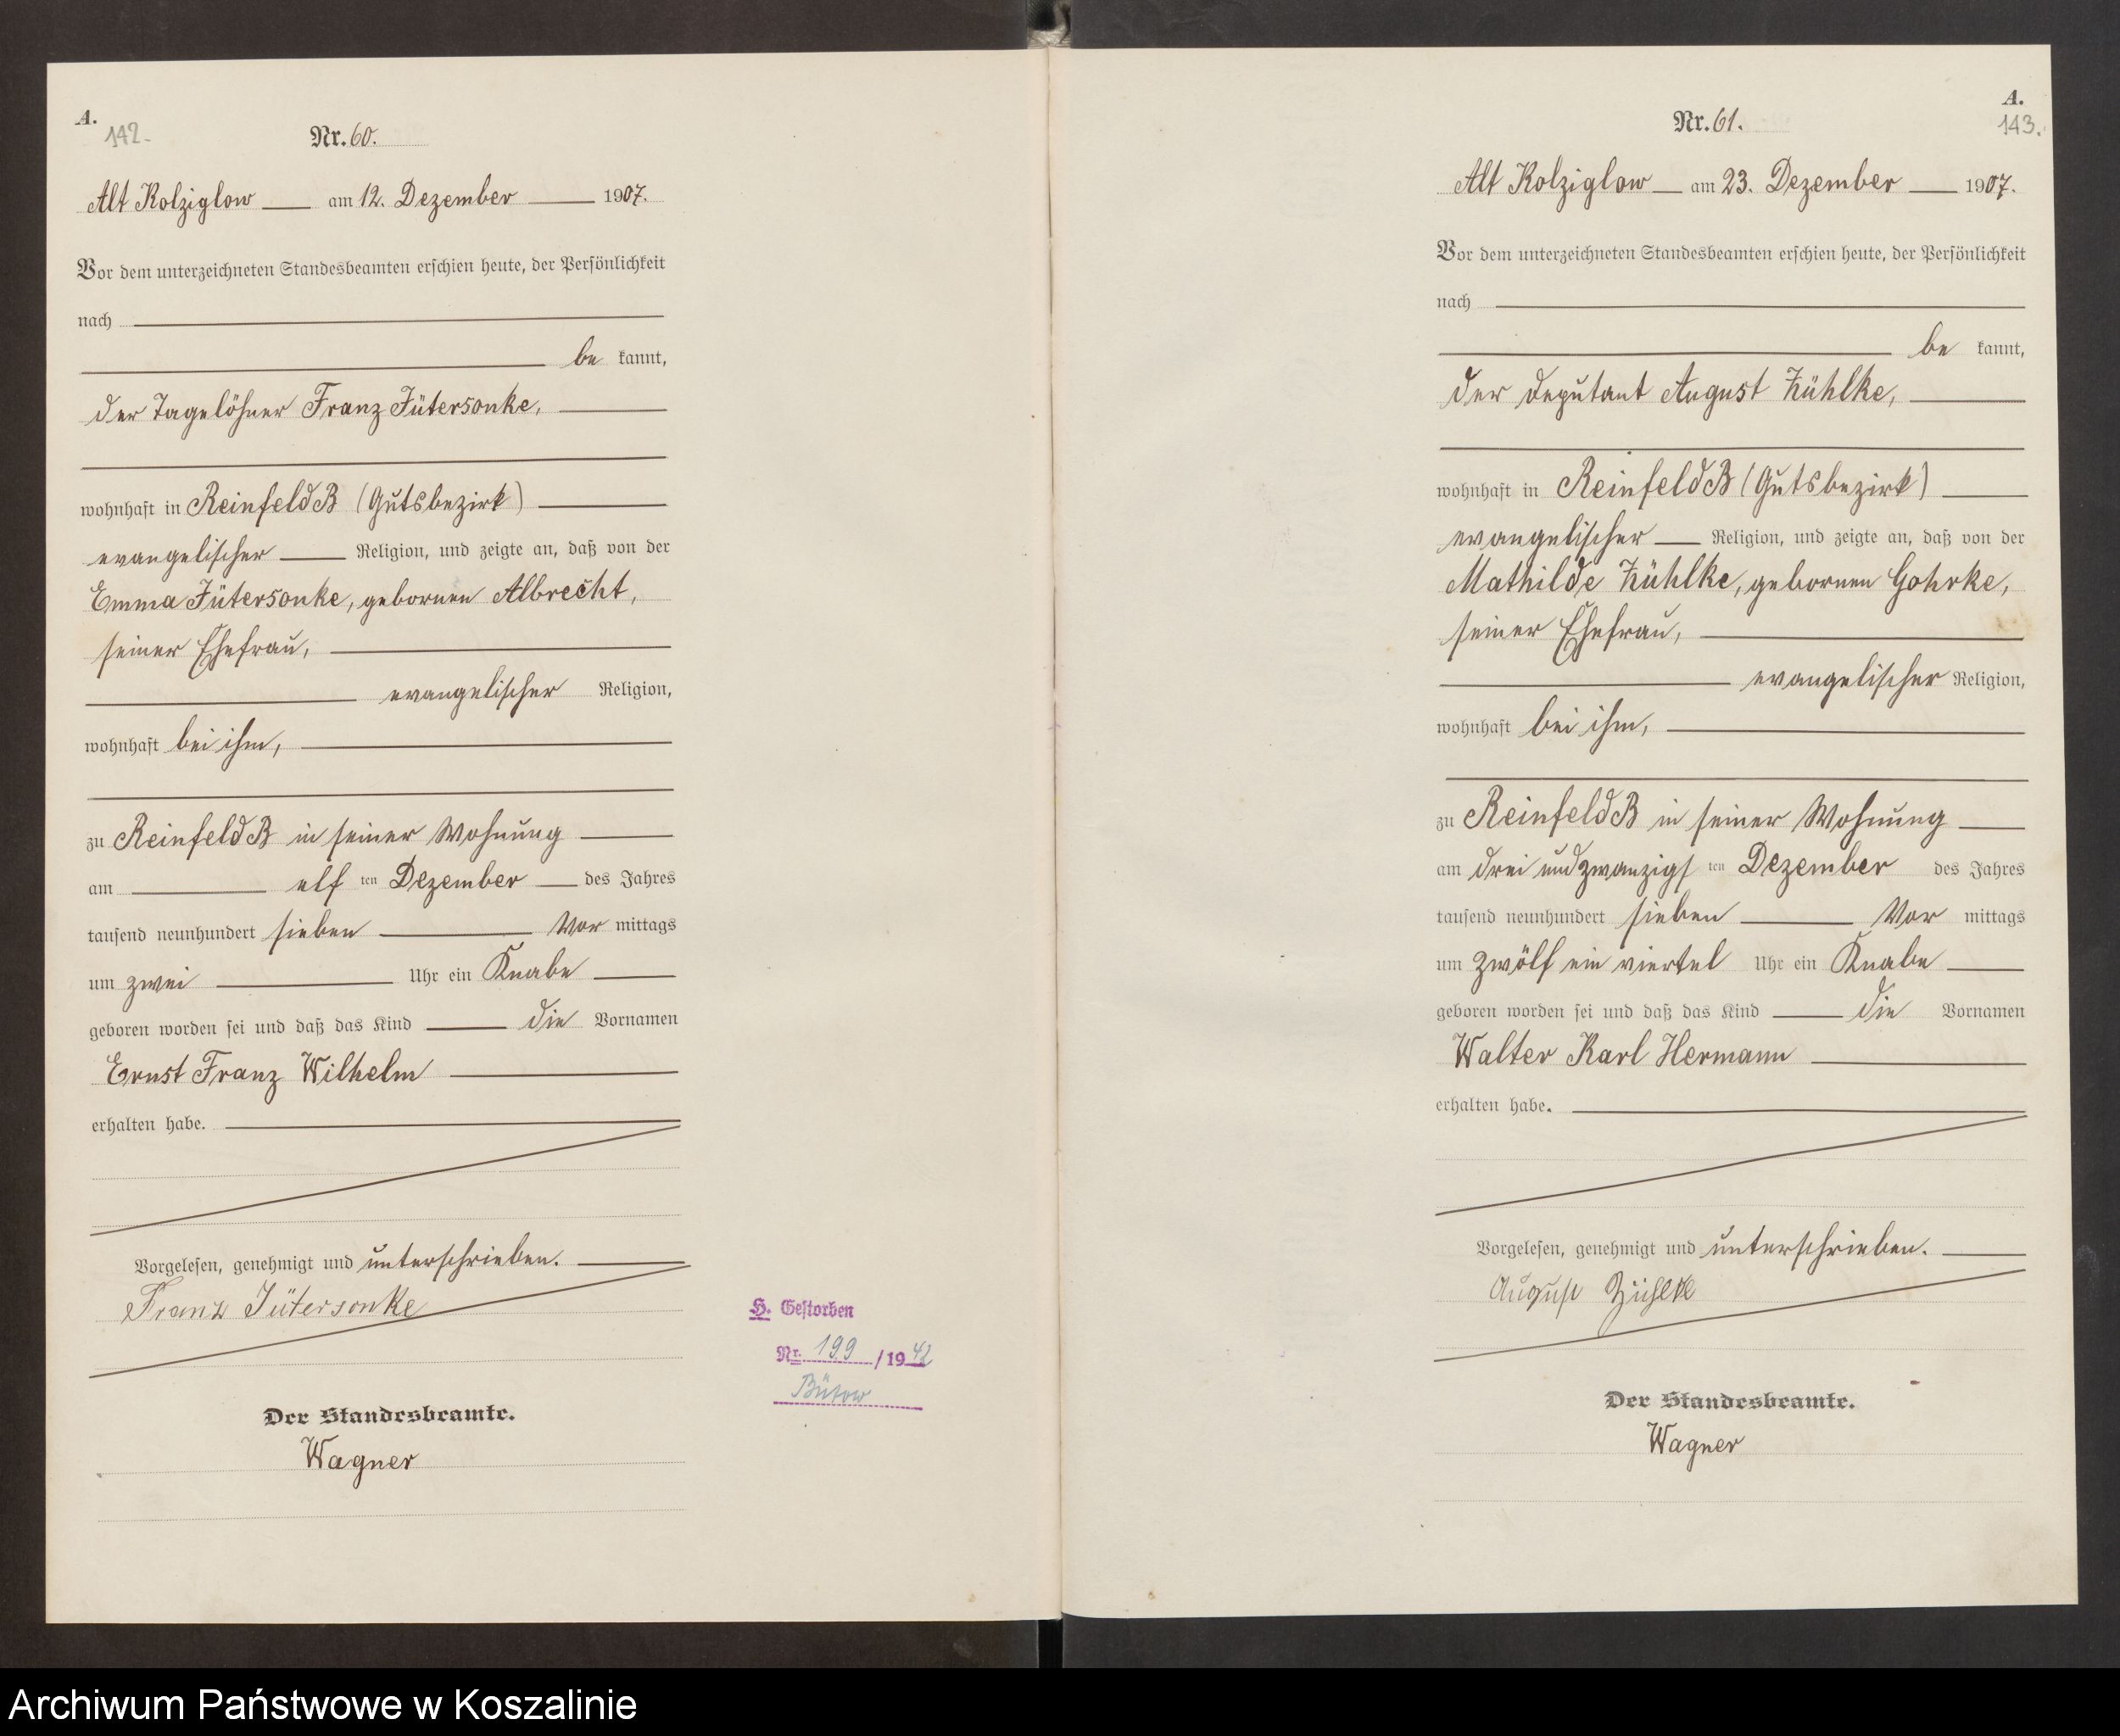 A.
142.
Nr. 60.
Alt Kolziglow am 12. Dezember 1907.
Vor dem unterzeichneten Standesbeamten erschien heute, der Persönlichkeit
nach
be kannt,
der Tagelöhner Franz Jütersonke,
wohnhaft in Reinfeld B (Gutsbezirk)
evangelischer Religion, und zeigte an, daß von der
Emma Jütersonke, gebornen Albrecht,
seiner Ehefrau,
evangelischer Religion,
wohnhaft bei ihm,
zu Reinfeld B in seiner Wohnung
am elf ten Dezember des Jahres
tausend neunhundert sieben Vor mittags
um zwei Uhr ein Knabe
geboren worden sei und daß das Kind die Vornamen
Ernst Franz Wilhelm
erhalten habe.
Vorgelesen, genehmigt und unterschrieben.
Franz Jütersonke
Der Standesbeamte.
Wagner
H. Gestorben
Nr. 199 / 1942
Bütow
A.
143.
Nr. 61.
Alt Kolziglow am 23. Dezember 1907.
Vor dem unterzeichneten Standesbeamten erschien heute, der Persönlichkeit
nach
be kannt,
der Deputant August Zühlke,
wohnhaft in Reinfeld B (Gutsbezirk)
evangelischer Religion, und zeigte an, daß von der
Mathilde Zühlke, gebornen Gohrke,
seiner Ehefrau,
evangelischer Religion,
wohnhaft bei ihm,
zu Reinfeld B in seiner Wohnung
am drei und zwanzigs ten Dezember des Jahres
tausend neunhundert sieben Vor mittags
um zwölf ein viertel Uhr ein Knabe
geboren worden sei und daß das Kind die Vornamen
Walter Karl Hermann
erhalten habe.
Vorgelesen, genehmigt und unterschrieben.
August Zühlke
Der Standesbeamte.
Wagner
Archiwum Państwowe w Koszalinie